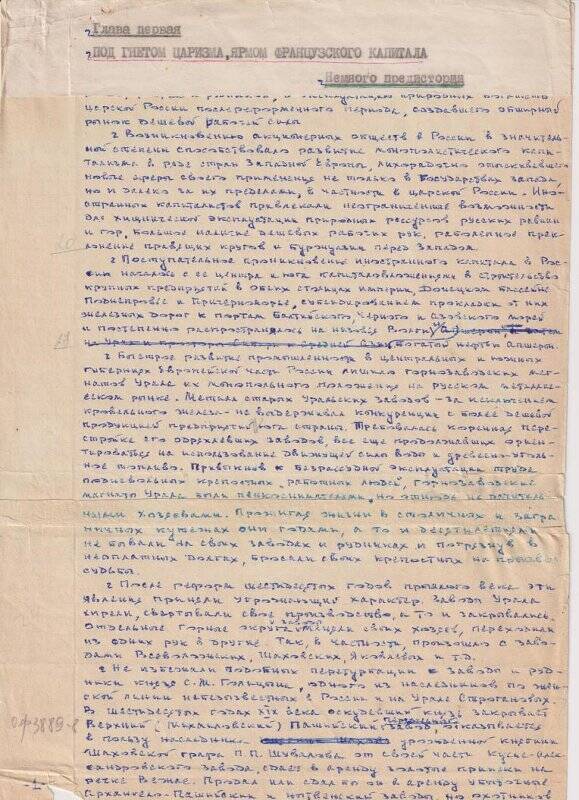 Глава первая
ПОД ГНЕТОМ ЦАРИЗМА, ЯРМОМ ФРАНЦУЗСКОГО КАПИТАЛА
Немного предистории
царской России послереформенного периода, создавшего обширный
рынок дешевой рабочей силы
Возникновению акционерных обществ в России в значитель-
ной степени способствовало развитие монополистического капи-
тализма в ряде стран Западной Европы, лихорадочно отыскивавшего
новые сферы своего применения не только в государствах запада,
но и далеко за их пределами, в частности в царской России. Ино-
странных капиталистов привлекали неограниченные возможности
для хищнической эксплуатации природных ресурсов русских равнин
и гор, большое наличие дешевых рабочих рук, раболепное прек-
лонение правящих кругов и буржуазии перед Западом.
Поступательное проникновение иностранного капитала в Рос-
сию началось с ее центра и юга капиталовложениями в строительство
крупных предприятий в обеих столицах империи, Донецком бассейне
Поднепровье и Причерноморье, субсидированием прокладки от них
железных дорог к портам Балтийского, Черного и Азовского морей
и постепенно распространялось на низовье Волги
богатой нефтью Апшерон.
Быстрое развитие промышленности в центральных и южных
губерниях Европейской части России лишило горнозаводских маг-
натов Урала их монопольного положения на русском металличе-
ском рынке. Металл старых Уральских заводов - за исключением
кровельного железа - не выдерживал конкуренции с более дешевой
продукцией предприятий юга страны. Требовалась коренная пере-
стройка его одряхлевших заводов, все еще продолжавших ориен-
тироваться на использование движущей силы воды и древесно-уголь-
ное топливо. Привыкнув к безрассудной эксплуатации труда
подневольных крепостных, работных людей, горнозаводские
магнаты Урала были пенкоснимателями, но отнюдь не
хозяевами. Прожигая жизни в столичных и загра-
ничных кутежах они годами, а то и десятилетиями
не бывали на своих заводах и рудниках и погрязнув в
неоплатных долгах, бросали своих крепостных на произвол
судьбы.
После реформ шестидесятых годов прошлого века эти
явления приняли угрожающий характер. Заводы Урала
хирели, свертывали свое производство, а то и закрывались.
Отдельные горные округа заводов меняли своих хозяев, переходили
из одних рук в другие. Так, в частности, произошло с заво-
дами Всеволожских, Шаховских, Яковлевых и т.д.
Не избежали подобных пертурбаций и заводы и руд-
ники князя С.М. Голицына, одного из наследников по жен-
ской линии небезызвестных в России и на Урале Строгановых.
В шестидесятых годах XIX века оскудевший князь закрывает
Верхний (Михайловский) Пашийский завод, отказывается
в пользу наследника урожденной княгини
Шаховской графа П.П. Шувалова от своей части Кусье-Алек-
сандровского завода, сдает в аренду золотые прииски на
речке Вежае. Продал или сдал бы он в аренду убыточные
Архангело-Пашийский и Нытвенский заводы, но охотников
20
21
оф3889-8
-1-